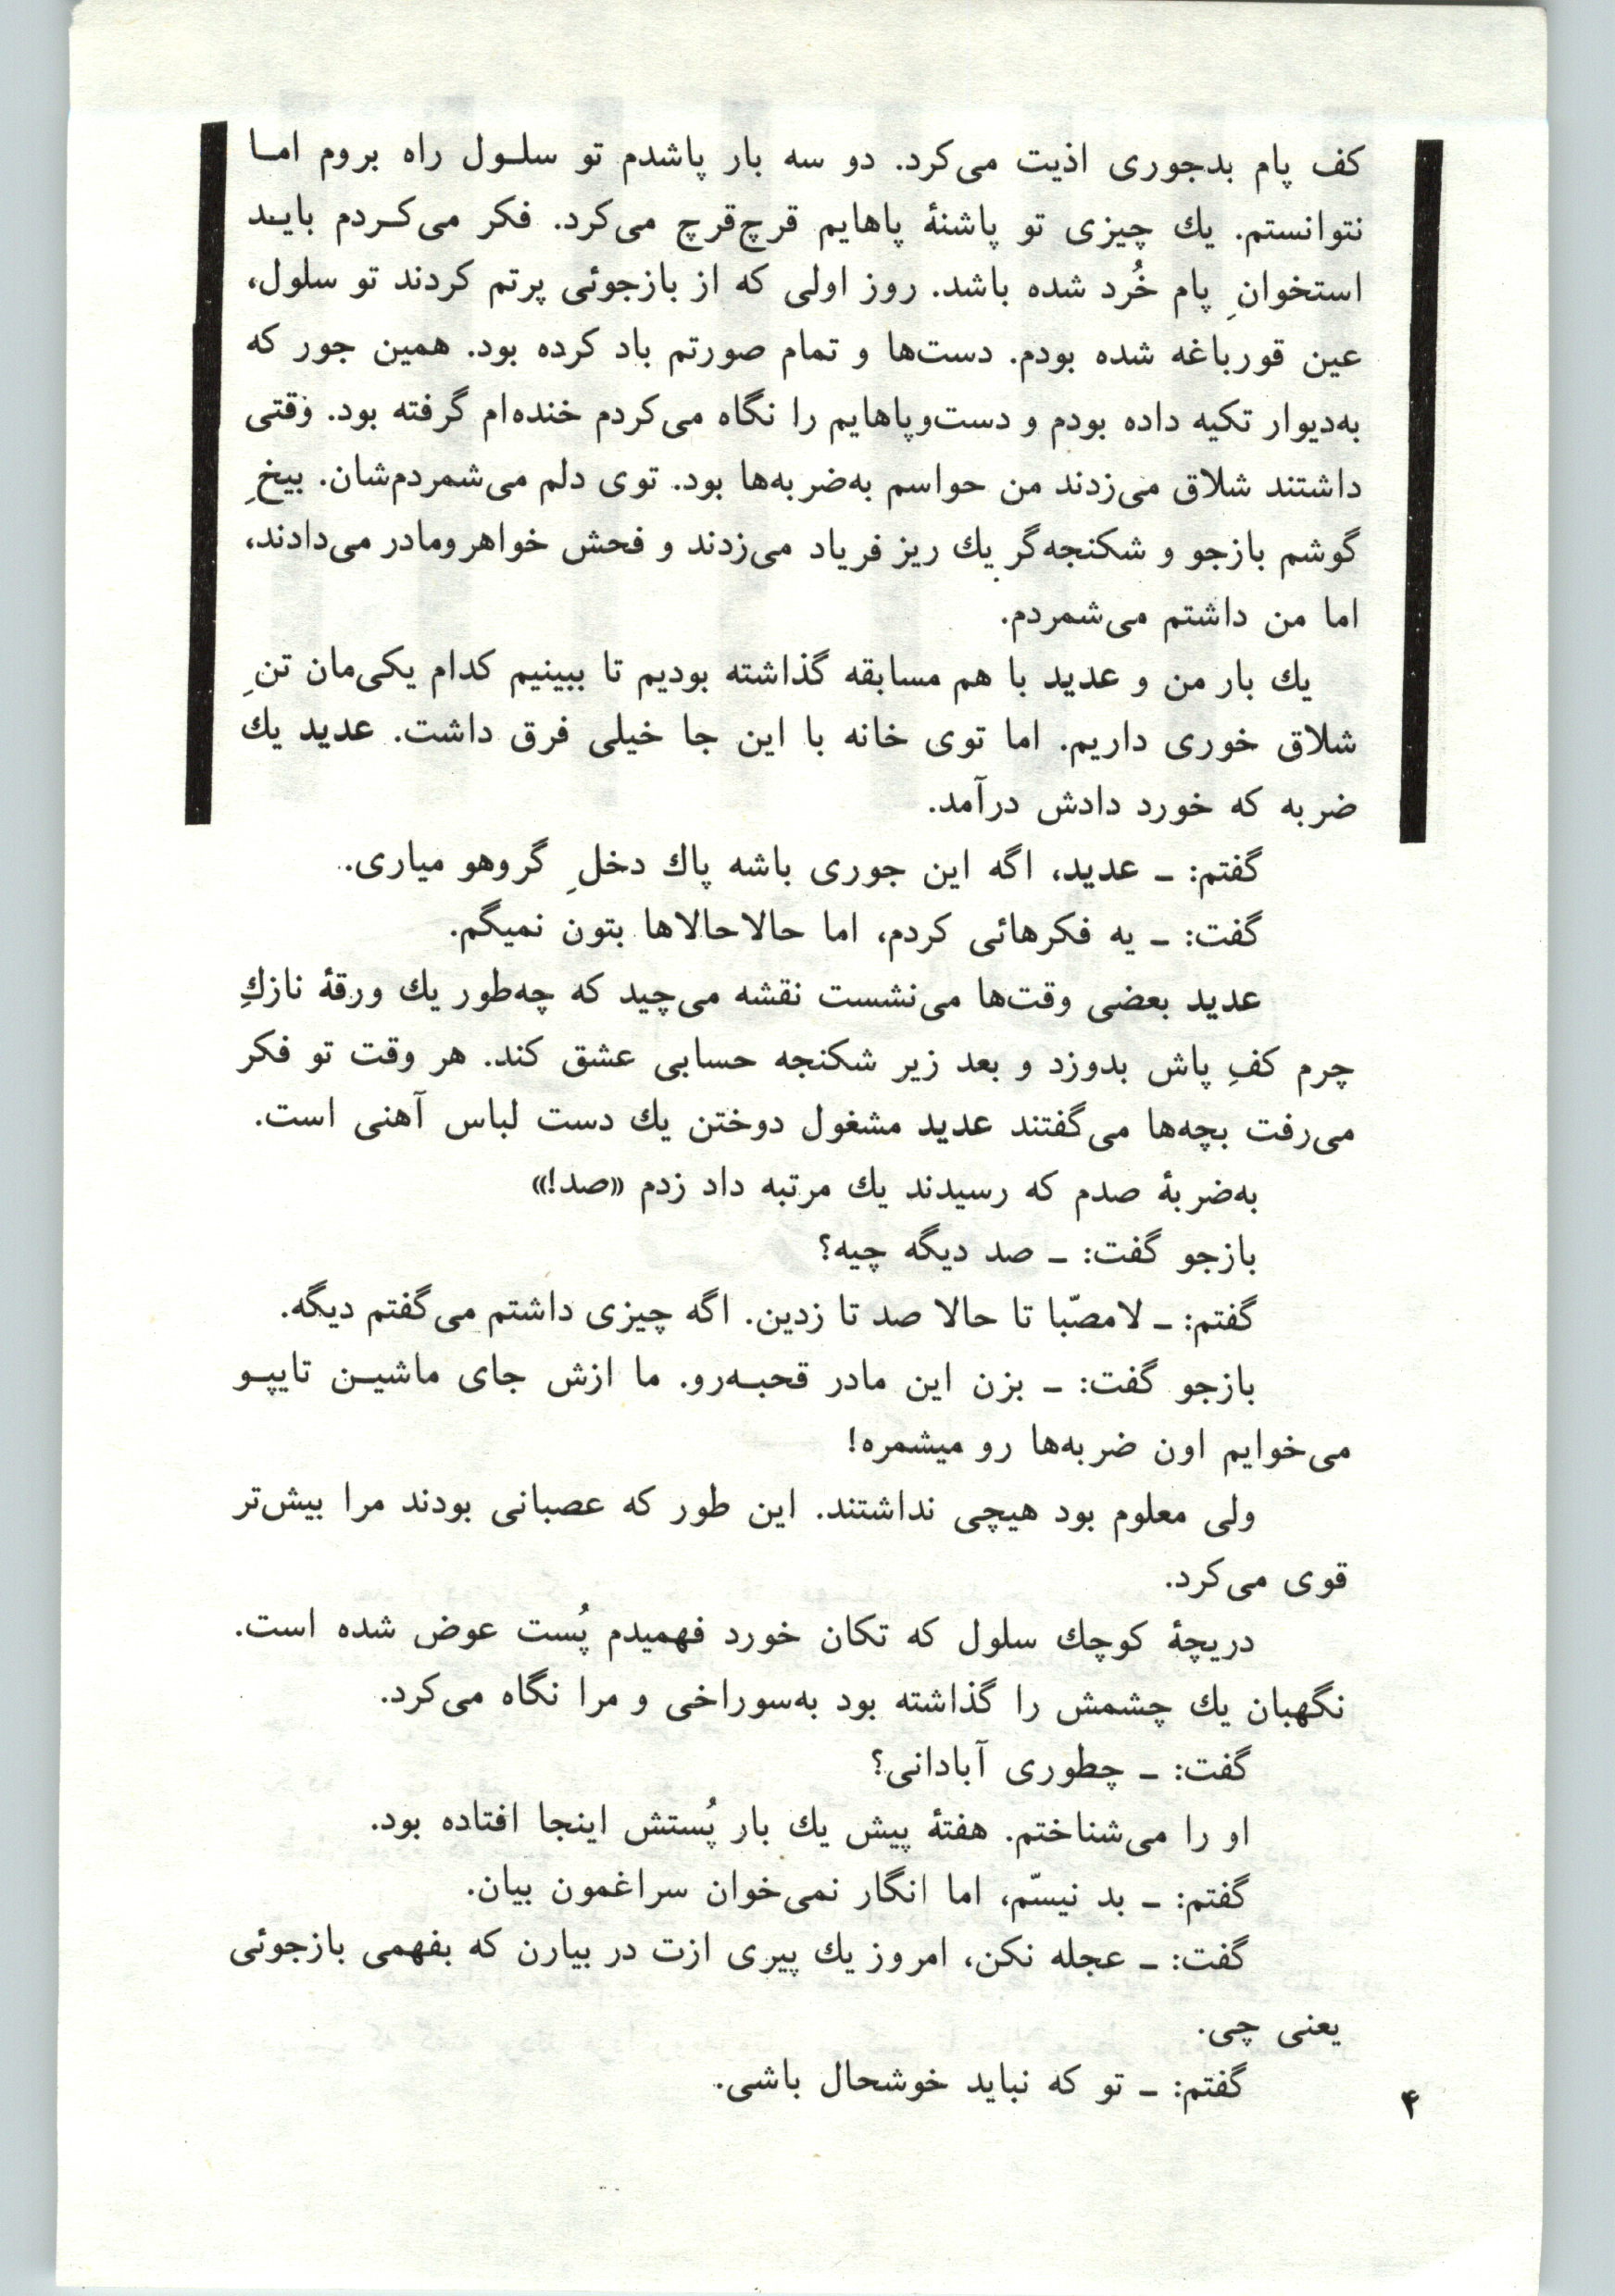 کف پام بدجوری اذیت می‌کرد. دو سه بار پاشدم تو سلـول راه بروم امـا
نتوانستم. یك چیزی تو پاشنهٔ پاهایم قرچ‌قرچ می‌کرد. فکر می‌کـردم بایـد
استخوانِ پام خُرد شده باشد. روز اولی که از بازجوئی پرتم کردند تو سلول،
عین قورباغه شده بودم. دست‌ها و تمام صورتم باد کرده بود. همین جور که
به‌دیوار تکیه داده بودم و دست‌وپاهایم را نگاه می‌کردم خنده‌ام گرفته بود. وقتی
داشتند شلاق می‌زدند من حواسم به‌ضربه‌ها بود. توی دلم می‌شمردم‌شان. بیخِ
گوشم بازجو و شکنجه‌گر یك ریز فریاد می‌زدند و فحش خواهرومادر می‌دادند،
اما من داشتم می‌شمردم.
یك بار من و عدید با هم مسابقه گذاشته بودیم تا ببینیم کدام یکی‌مان تنِ
شلاق خوری داریم. اما توی خانه با این جا خیلی فرق داشت. عدید یك
ضربه که خورد دادش درآمد.
گفتم: ـ عدید، اگه این جوری باشه پاك دخلِ گروهو میاری.
گفت: ـ یه فکرهائی کردم، اما حالاحالاها بتون نمیگم.
عدید بعضی وقت‌ها می‌نشست نقشه می‌چید که چه‌طور یك ورقهٔ نازكِ
چرم کفِ پاش بدوزد و بعد زیر شکنجه حسابی عشق کند. هر وقت تو فکر
می‌رفت بچه‌ها می‌گفتند عدید مشغول دوختن یك دست لباس آهنی است.
به‌ضربهٔ صدم که رسیدند یك مرتبه داد زدم «صد!»
بازجو گفت: ـ صد دیگه چیه؟
گفتم: ـ لامصّبا تا حالا صد تا زدین. اگه چیزی داشتم می‌گفتم دیگه.
بازجو گفت: ـ بزن این مادر قحبـه‌رو. ما ازش جای ماشیـن تایپـو
می‌خوایم اون ضربه‌ها رو میشمره!
ولی معلوم بود هیچی نداشتند. این طور که عصبانی بودند مرا بیش‌تر
قوی می‌کرد.
دریچهٔ کوچك سلول که تکان خورد فهمیدم پُست عوض شده است.
نگهبان یك چشمش را گذاشته بود به‌سوراخی و مرا نگاه می‌کرد.
گفت: ـ چطوری آبادانی؟
او را می‌شناختم. هفتهٔ پیش یك بار پُستش اینجا افتاده بود.
گفتم: ـ بد نیسّم، اما انگار نمی‌خوان سراغمون بیان.
گفت: ـ عجله نکن، امروز یك پیری ازت در بیارن که بفهمی بازجوئی
یعنی چی.
گفتم: ـ تو که نباید خوشحال باشی.
۴